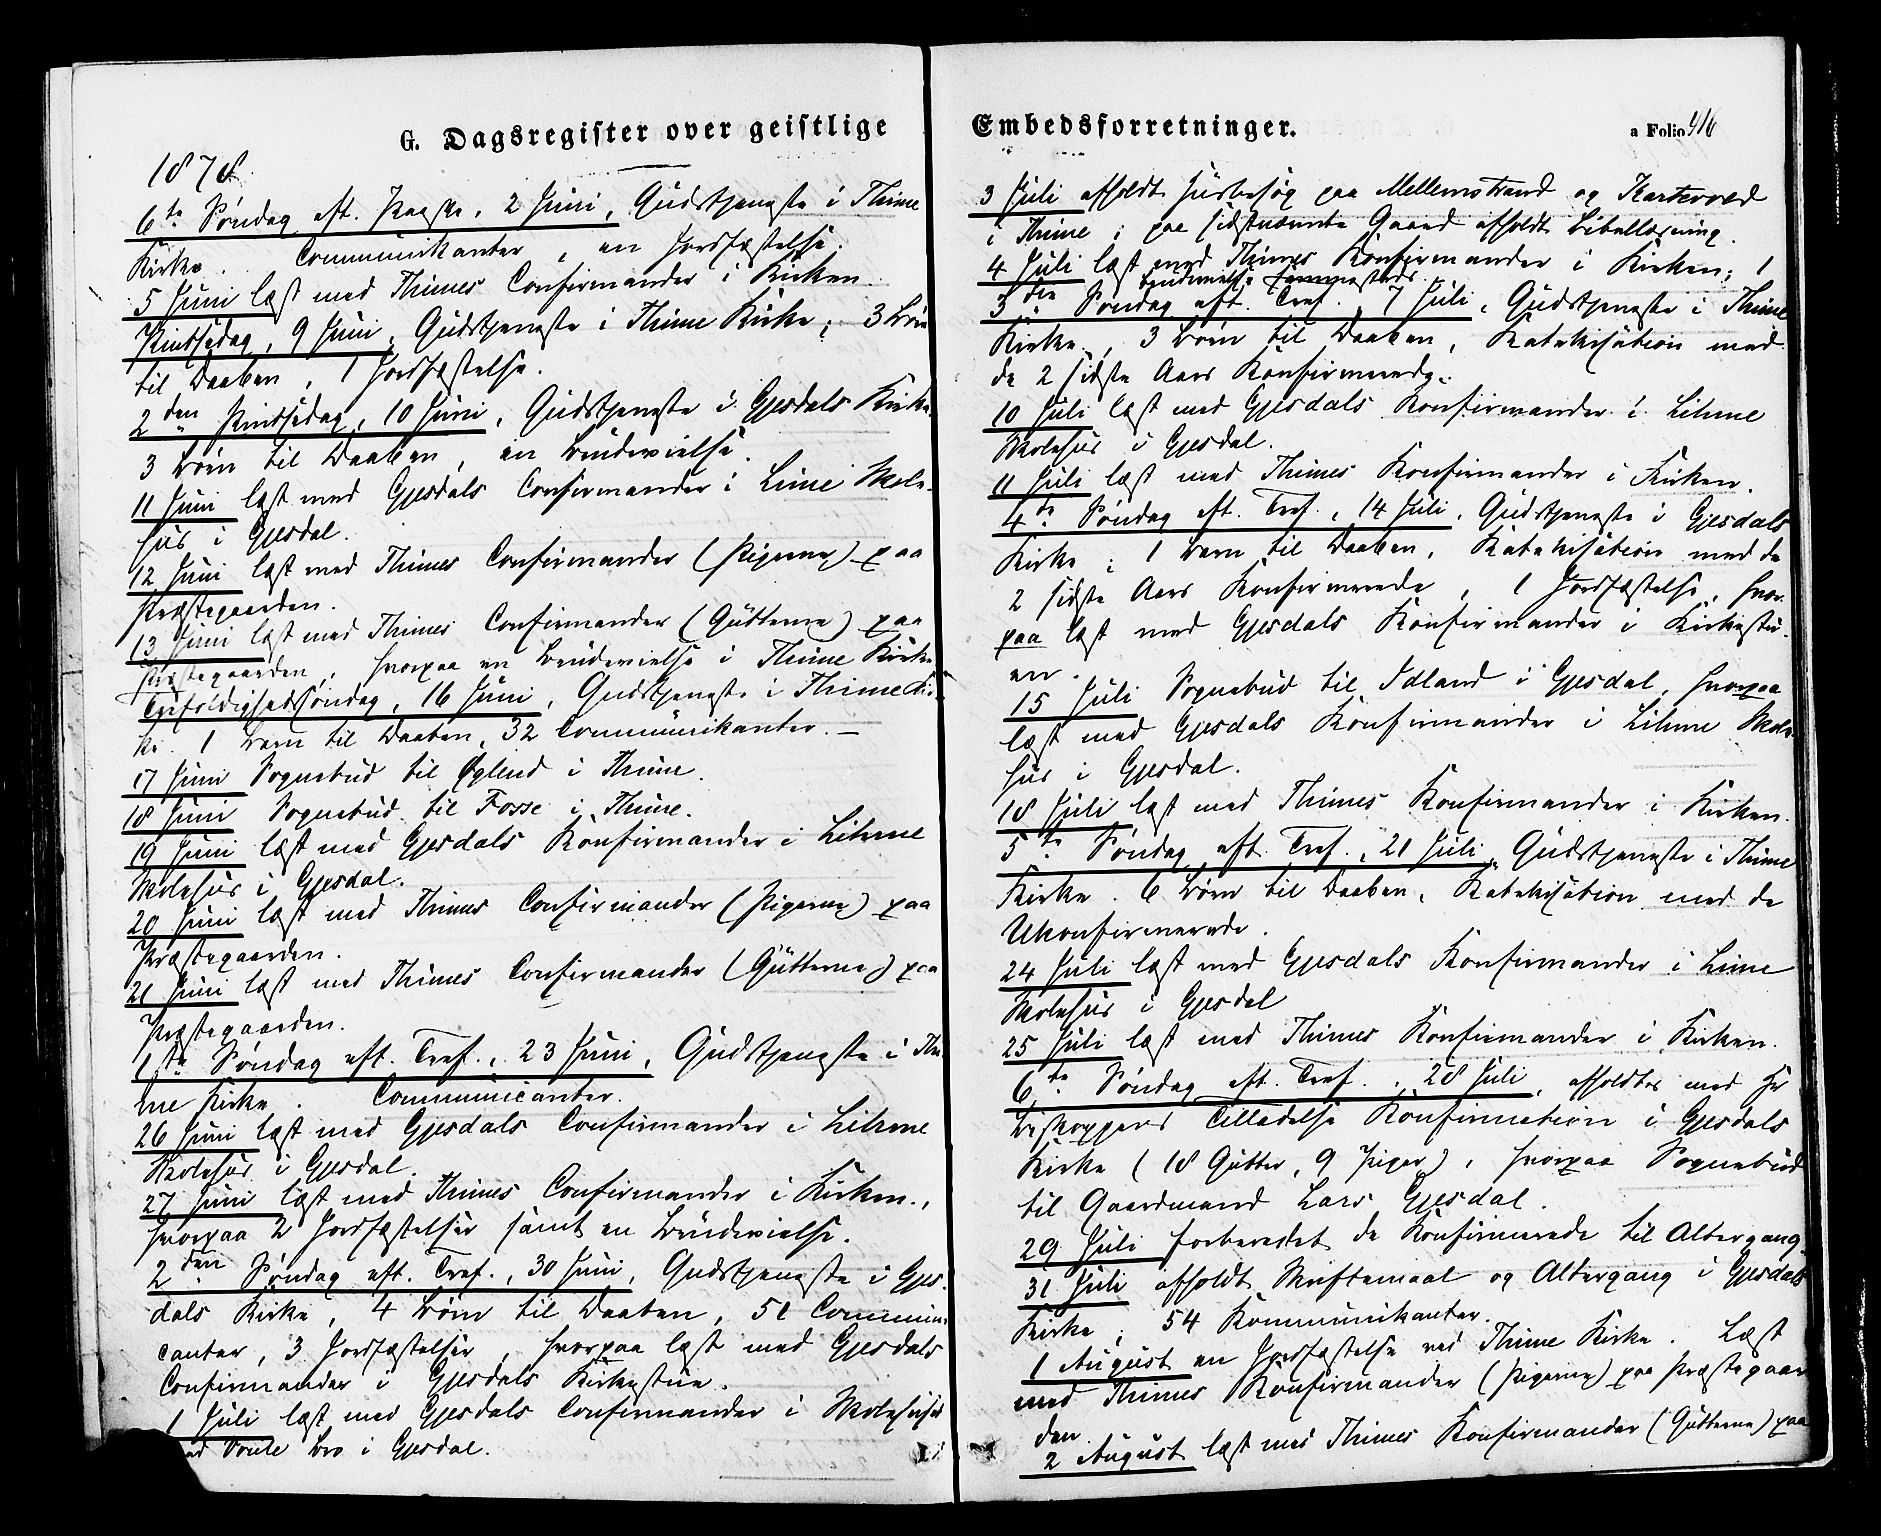 G. Dagsregister over geistlige
1878.
6te Søndag eft. Paaske, 2 Juni, Gudstjeneste i Thime
Kirke. Communikanter, en Jordfæstelse.
5 Juni læst med Thimes Confirmander i Kirken.
Pintsedag, 9 Juni, Gudstjeneste i Thime Kirke, 3 Børn
til Daaben, 1 Jordfæstelse.
2den Pintsedag, 10 Juni, Gudstjeneste i Gjesdals Kirke,
3 Børn til Daaben, en Brudevielse.
11 Juni læst med Gjesdals Confirmander i Lime Skole-
hus i Gjesdal.
12 Juni læst med Thimes Confirmander (Pigerne) paa
Præstegaarden.
13 Juni læst med Thimes Confirmander (Gutterne) paa
Præstegaarden, hvorpaa en Brudevielse i Thime Kirke.
Trefoldighedssøndag, 16 Juni, Gudstjeneste i Thime Kir-
ke. 1 Barn til Daaben, 32 Communikanter. –
17 Juni Sognebud til Øglend i Thime.
18 Juni Sognebud til Fosse i Thime.
19 Juni læst med Gjesdals Konfirmander i Lihme
Skolehus i Gjesdal.
20 Juni læst med Thimes Confirmander (Pigerne) paa
Præstegaarden.
21 Juni læst med Thimes Confirmander (Gutterne) paa
Præstegaarden.
1ste Søndag eft. Tref., 23 Juni, Gudstjeneste i Thi-
me Kirke. Communicanter.
26 Juni læst med Gjesdals Confirmander i Lihme
Skolehus i Gjesdal.
27 Juni læst med Thimes Confirmander i Kirken,
hvorpaa 2 Jordfæstelser samt en Brudevielse.
2den Søndag eft. Tref., 30 Juni, Gudstjeneste i Gjes-
dals Kirke, 4 Børn til Daaben, 51 Communi-
canter, 3 Jordfæstelser, hvorpaa læst med Gjesdals
Confirmander i Gjesdals Kirkestue.
1 Juli læst med Gjesdals Confirmander i Skolehuset
ved Soule Bro i Gjesdal.
Embedsforretninger.
a Folio 416
3 Juli afholdt Husbesøg paa Mellemstrand og Karteved
i Thime; paa sidstnævnte Gaard afholdt Bibellæsning.
4 Juli læst med Thimes Konfirmander i Kirken; 1
Brudevielse sammesteds.
3die Søndag eft. Tref., 7 Juli, Gudstjeneste i Thime
Kirke, 3 Børn til Daaben, Katekisation med
de 2 sidste Aars Konfirmerede.
10 Juli læst med Gjesdals Konfirmander i Lihme
Skolehus i Gjesdal.
11 Juli læst med Thimes Konfirmander i Kirken.
4de Søndag eft. Tref., 14 Juli, Gudstjeneste i Gjesdals
Kirke; 1 Barn til Daaben, Katekisation med de
2 sidste Aars Konfirmerede, 1 Jordfæstelse, hvor-
paa læst med Gjesdals Konfirmander i Kirkestu-
en.
15 Juli Sognebud til Idland i Gjesdal, hvorpaa
læst med Gjesdals Konfirmander i Lihme Skole-
hus i Gjesdal.
18 Juli læst med Thimes Konfirmander i Kirken.
5te Søndag eft. Tref., 21 Juli, Gudstjeneste i Thime
Kirke. 6 Børn til Daaben, Katekisation med de
Ukonfirmerede.
24 Juli læst med Gjesdals Konfirmander i Lime
Skolehus i Gjesdal
25 Juli læst med Thimes Konfirmander i Kirken.
6te Søndag eft. Tref., 28 Juli, afholdtes med Hr
Biskoppens Tilladelse Konfirmation i Gjesdals
Kirke (18 Gutter, 9 Piger), hvorpaa Sognebud
til Gaardmand Lars Gjesdal.
29 Juli forberedet de Konfirmerede til Altergang.
31 Juli afholdt Skriftemaal og Altergang i Gjesdals
Kirke; 54 Kommunikanter.
1 August en Jordfæstelse ved Thime Kirke. Læst
med Thimes Konfirmander (Pigerne) paa Præstegaar-
den
2 August læst med Thimes Konfirmander (Gutterne) paa